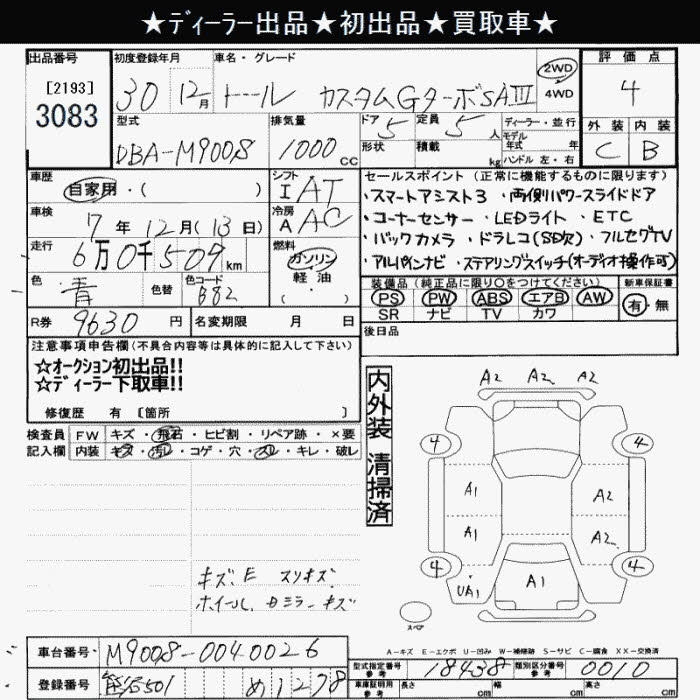 ★ディーラー出品★初出品★買取車★
出品番号
[2193]
3083
初度登録年月
30 12月
車名・グレード
トール カスタムGターボSAⅢ
2WD
4WD
評価点
4
外装 内装
C B
型式
DBA-M900S
排気量
1000cc
ドア 5
定員 5人
形状
積載 kg
ディーラー・並行
モデル年式 年
ハンドル 左・右
車歴
自家用・( )
シフト
I AT
車検
7年 12月(13日)
冷房
A AC
走行
6万0千509km
燃料
ガソリン
軽・油
・( )
色
青
色替
色コード
B82
R券 9630円
名変期限 月 日
セールスポイント(正常に機能するものに限ります)
・スマートアシスト3 ・両側パワースライドドア
・コーナーセンサー ・LEDライト ・ETC
・バックカメラ ・ドラレコ(SD欠) ・フルセグTV
・アルパインナビ ・ステアリングスイッチ(オーディオ操作可)
装備品(純正品に限り〇をつけてください)
PS PW ABS エアB AW
SR ナビ TV カワ
新車保証書
有・無
後日品
注意事項申告欄(不具合内容等は具体的に記入して下さい)
☆オークション初出品!!
☆ディーラー下取車!!
修復歴 有 [箇所 ]
検査員
記入欄
FW キズ・飛石・ヒビ割・リペア跡・×要
内装 キズ・汚レ・コゲ・穴・スレ・キレ・破レ
内外装 清掃済
A2 A2 A2
4 4
A1 A2
A1 A2
4 4
UA1 A1
スペア
キズ、E スリキズ
ホイール、
ミラーキズ
A-キズ E-エクボ U-凹み W-補修跡 S-サビ C-腐食 XX-交換済
車台番号 M900S-0040026
登録番号
501 め1278
型式指定番号 参考 18438
類別区分番号 参考 0010
車庫証明用 参考 長さ cm 幅 cm 高さ cm